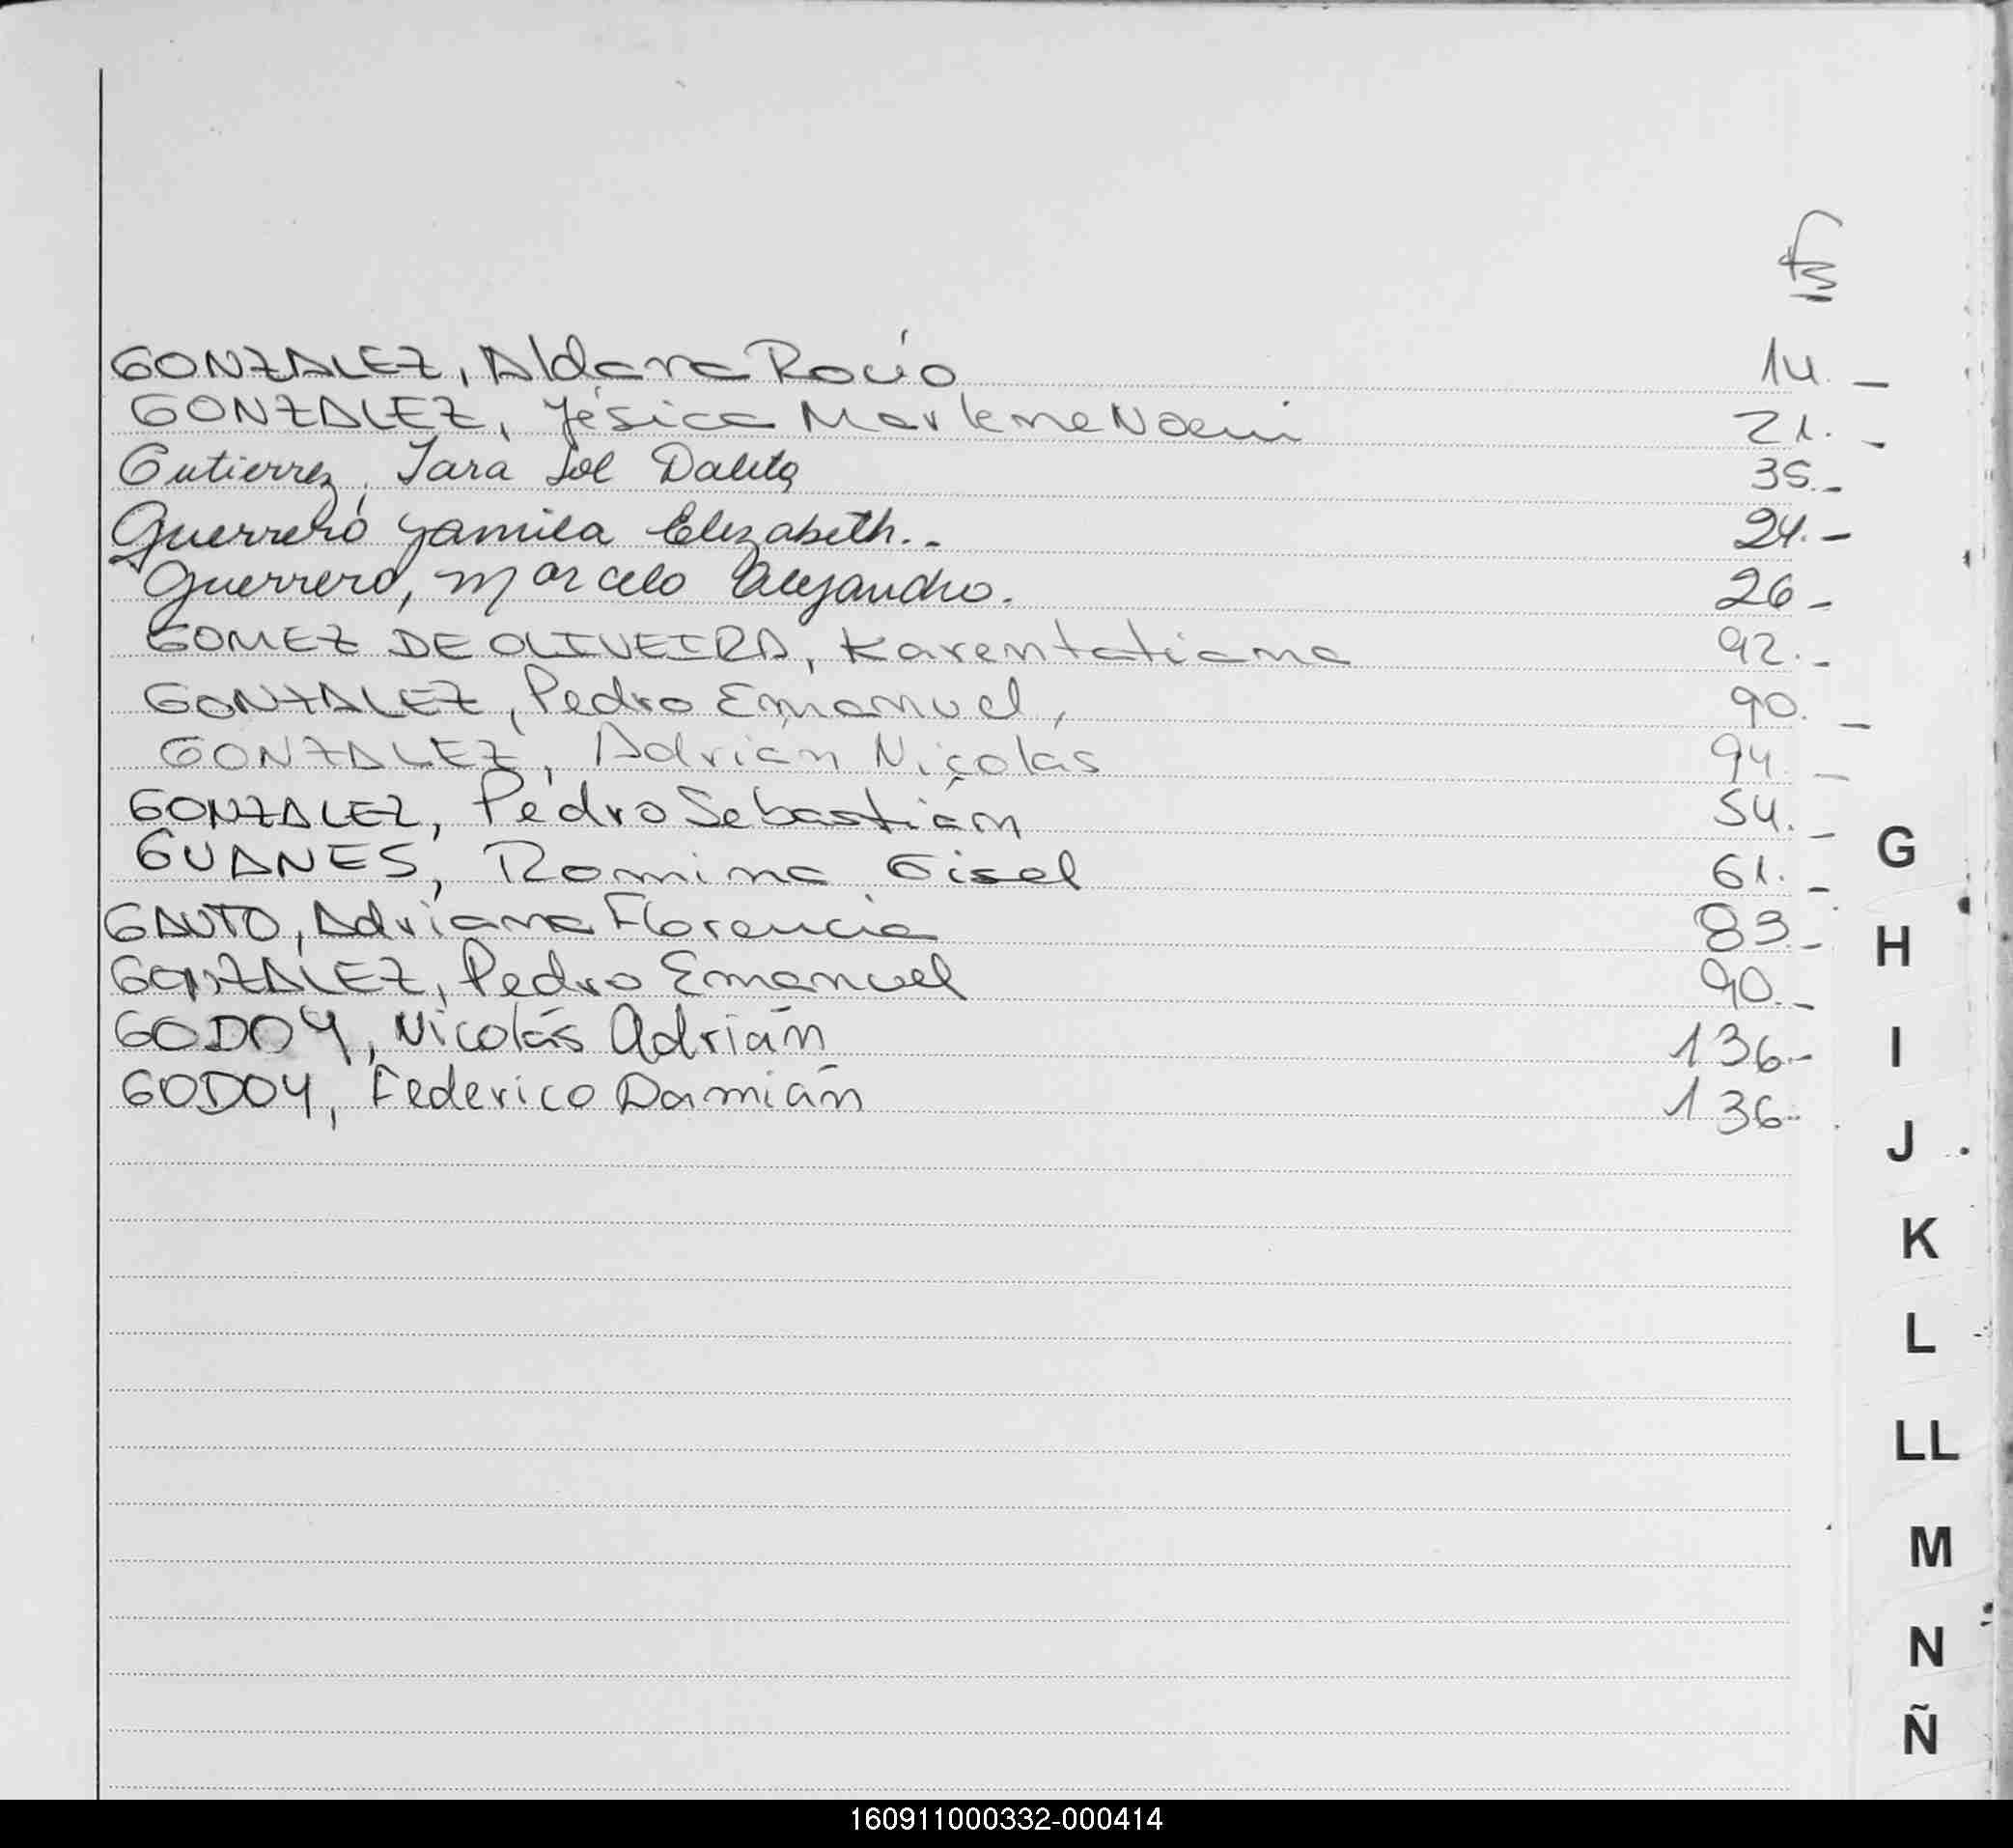 fs
GONZALEZ, Aldana Rocío 14.-
GONZALEZ, Yésica Marlene Noemi 21.-
Gutierrez, Sara Sol Dalila 35.-
Guerrero Yamila Elizabeth.- 24.-
Guerrero, Marcelo Alejandro. 26-
GOMEZ DE OLIVEIRA, Karen tatiana 92.-
GONZALEZ, Pedro Emanuel, 90.-
GONZALEZ, Adrián Nicolás 94.-
GONZALEZ, Pedro Sebastián 54.-
GUANES, Romina Gisel 61.-
GAUTO, Adriana Florencia 83.-
GONZALEZ, Pedro Emanuel 90.-
GODOY, Nicolás Adrián 136.-
GODOY, Federico Damián 136.-
G
H
I
J
K
L
LL
M
N
Ñ
160911000332-000414